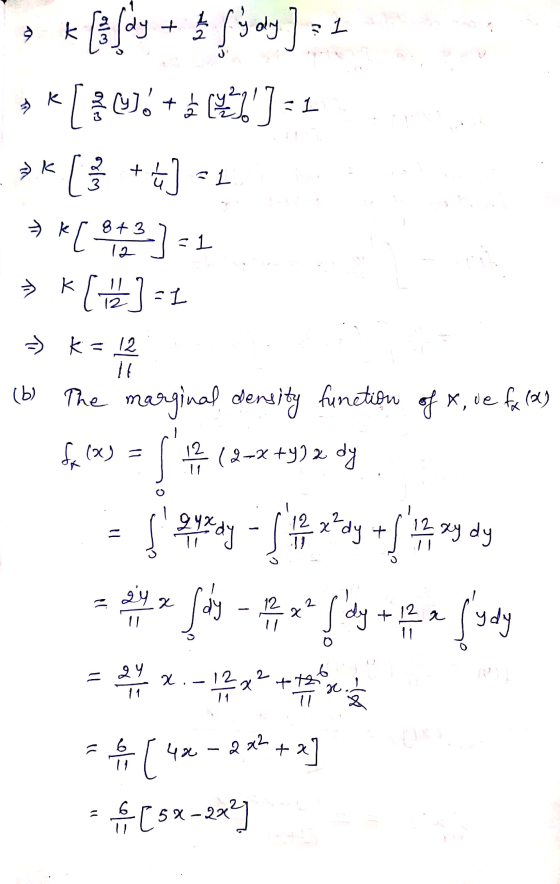 ⇒ k [2/3 ∫₀¹ dy + 1/2 ∫₀¹ y dy] = 1
⇒ k [2/3 [y]₀¹ + 1/2 [y²/2]₀¹] = 1
⇒ k [2/3 + 1/4] = 1
⇒ k [(8+3)/12] = 1
⇒ k [11/12] = 1
⇒ k = 12/11
(b) The marginal density function of X, ie fₓ(x)
fₓ(x) = ∫₀¹ 12/11 (2-x+y) x dy
= ∫₀¹ 24x/11 dy - ∫₀¹ 12/11 x² dy + ∫₀¹ 12/11 xy dy
= 24/11 x ∫₀¹ dy - 12/11 x² ∫₀¹ dy + 12/11 x ∫₀¹ y dy
= 24/11 x . - 12/11 x² + 12⁶/11 x . 1/2
= 6/11 [4x - 2x² + x]
= 6/11 [5x - 2x²]